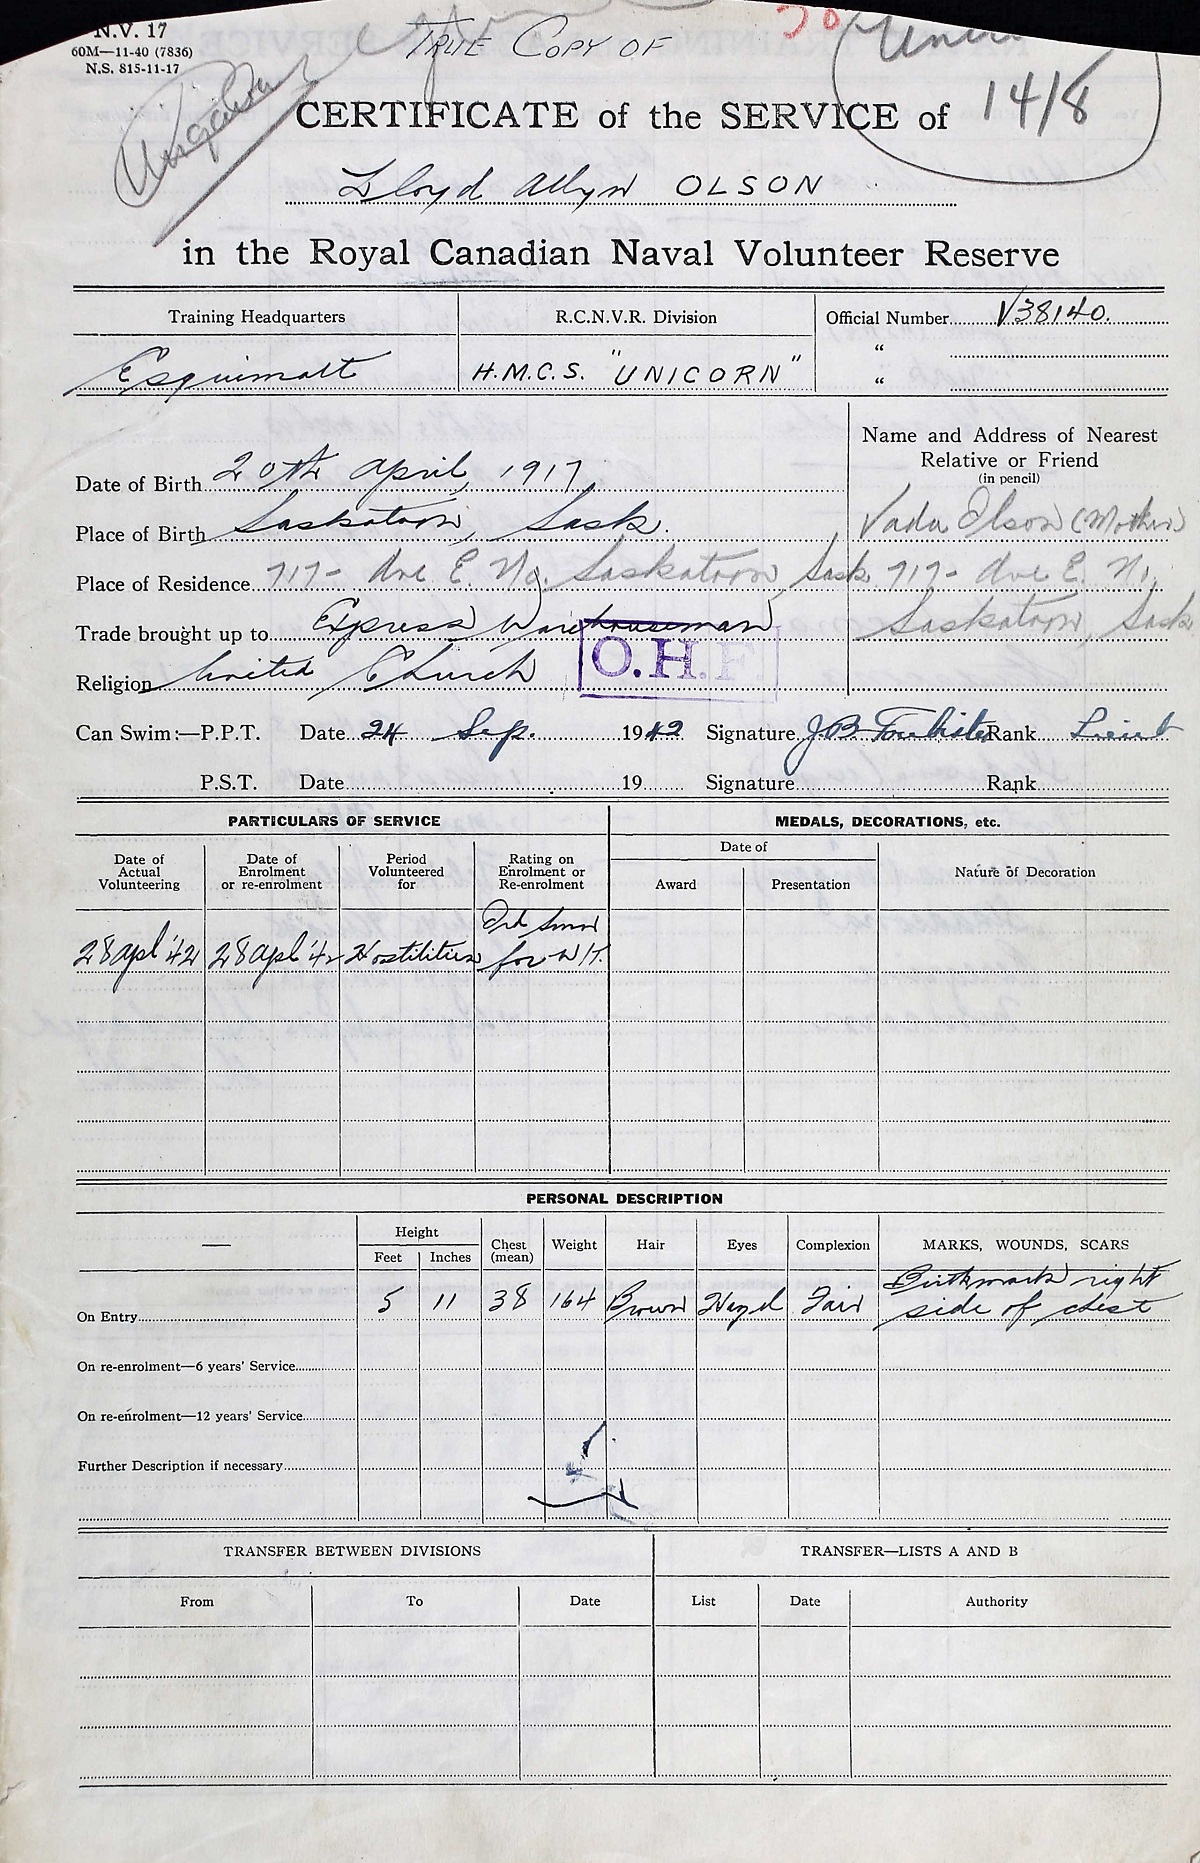 N.V. 17
60M—11-40 (7836)
N.S. 815-11-17
TRUE COPY OF
14/8
CERTIFICATE of the SERVICE of
Lloyd Allyn OLSON
in the Royal Canadian Naval Volunteer Reserve
Training Headquarters R.C.N.V.R. Division Official Number V38140.
Esquimalt H.M.C.S. "UNICORN" "
"
Name and Address of Nearest
Relative or Friend
(in pencil)
Date of Birth 20th April, 1917
Place of Birth Saskatoon, Sask. Vada Olson (Mother)
Place of Residence 717- Ave E. No. Saskatoon, Sask. 717- Ave E. No.
Trade brought up to Express Warehouseman Saskatoon, Sask
Religion United Church O.H.F.
Can Swim:—P.P.T. Date 24 Sep. 1942 Signature J.B. Rank Lieut
P.S.T. Date 19 Signature Rank
PARTICULARS OF SERVICE MEDALS, DECORATIONS, etc.
Date of Actual Volunteering Date of Enrolment or re-enrolment Period Volunteered for Rating on Enrolment or Re-enrolment Date of Nature of Decoration
Award Presentation
28 Apl '42 28 Apl '42 Hostilities Ord Smn for W/T.
PERSONAL DESCRIPTION
— Height Chest (mean) Weight Hair Eyes Complexion MARKS, WOUNDS, SCARS
Feet Inches
On Entry 5 11 38 164 Brown Hazel Fair Birthmark right side of chest
On re-enrolment—6 years' Service
On re-enrolment—12 years' Service
Further Description if necessary
TRANSFER BETWEEN DIVISIONS TRANSFER—LISTS A AND B
From To Date List Date Authority